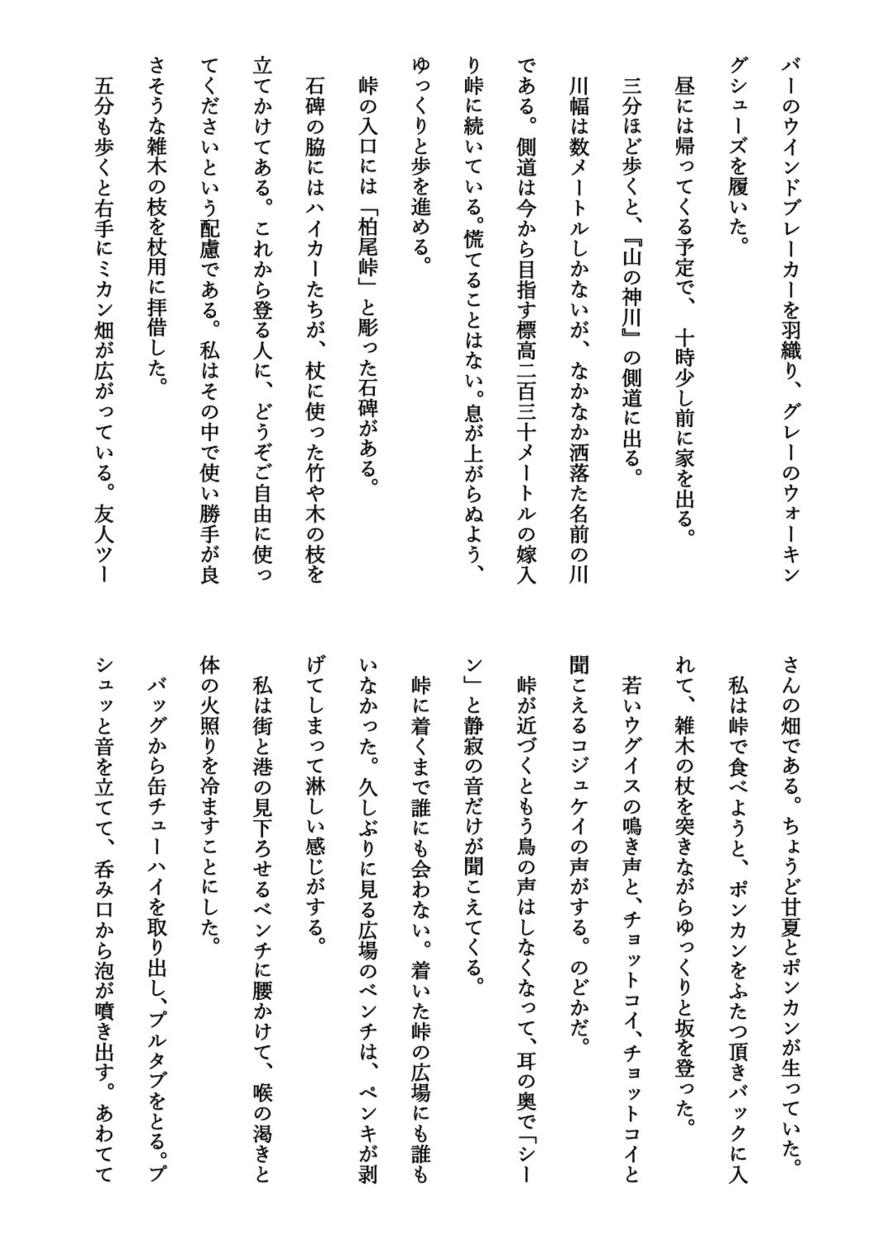 バーのウインドブレーカーを羽織り、グレーのウォーキン
グシューズを履いた。
昼には帰ってくる予定で、十時少し前に家を出る。
三分ほど歩くと、『山の神川』の側道に出る。
川幅は数メートルしかないが、なかなか洒落た名前の川
である。側道は今から目指す標高二百三十メートルの嫁入
り峠に続いている。慌てることはない。息が上がらぬよう、
ゆっくりと歩を進める。
峠の入口には「柏尾峠」と彫った石碑がある。
石碑の脇にはハイカーたちが、杖に使った竹や木の枝を
立てかけてある。これから登る人に、どうぞご自由に使っ
てくださいという配慮である。私はその中で使い勝手が良
さそうな雑木の枝を杖用に拝借した。
五分も歩くと右手にミカン畑が広がっている。友人ツー
さんの畑である。ちょうど甘夏とポンカンが生っていた。
私は峠で食べようと、ポンカンをふたつ頂きバックに入
れて、雑木の杖を突きながらゆっくりと坂を登った。
若いウグイスの鳴き声と、チョットコイ、チョットコイと
聞こえるコジュケイの声がする。のどかだ。
峠が近づくともう鳥の声はしなくなって、耳の奥で「シー
ン」と静寂の音だけが聞こえてくる。
峠に着くまで誰にも会わない。着いた峠の広場にも誰も
いなかった。久しぶりに見る広場のベンチは、ペンキが剥
げてしまって淋しい感じがする。
私は街と港の見下ろせるベンチに腰かけて、喉の渇きと
体の火照りを冷ますことにした。
バッグから缶チューハイを取り出し、プルタブをとる。プ
シュッと音を立てて、呑み口から泡が噴き出す。あわてて